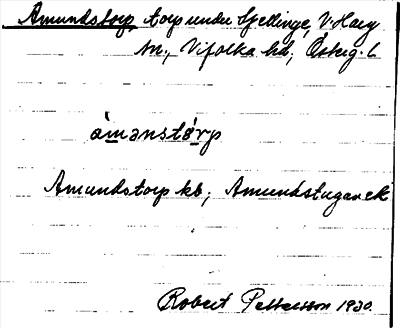 Amundstorp, torp under Spellinge, V. Harg
sn, Vifolka hd, Österg. l.
ámanstǻrp
Amundstorp kb; Amundstugan ek
Robert Pettersson 1930.